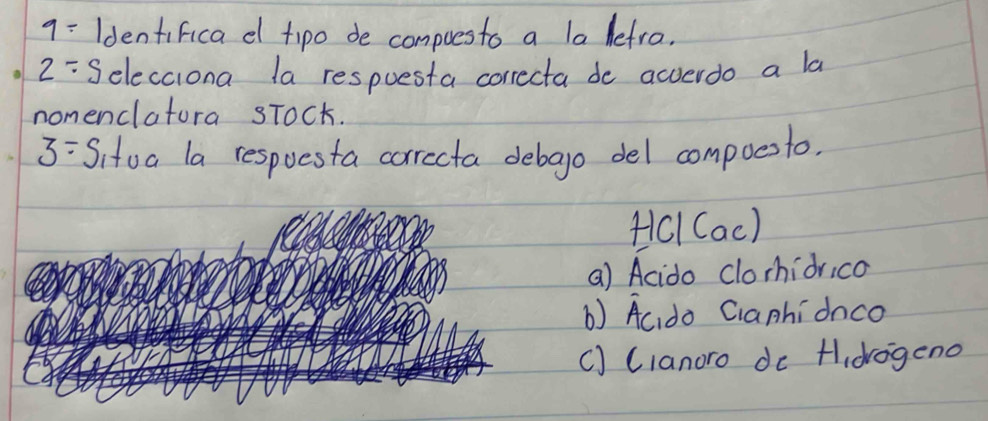 1= Identifica el tipo de compuesto a la letra.
2= Selecciona la respuesta correcta de acuerdo a la
nomenclatura STOCK.
3= Situa la respuesta correcta debajo del compuesto.
HCl (ac)
a) Ácido clorhídrico
b) Ácido Cianhídrico
c) Cianoro de Hidrógeno